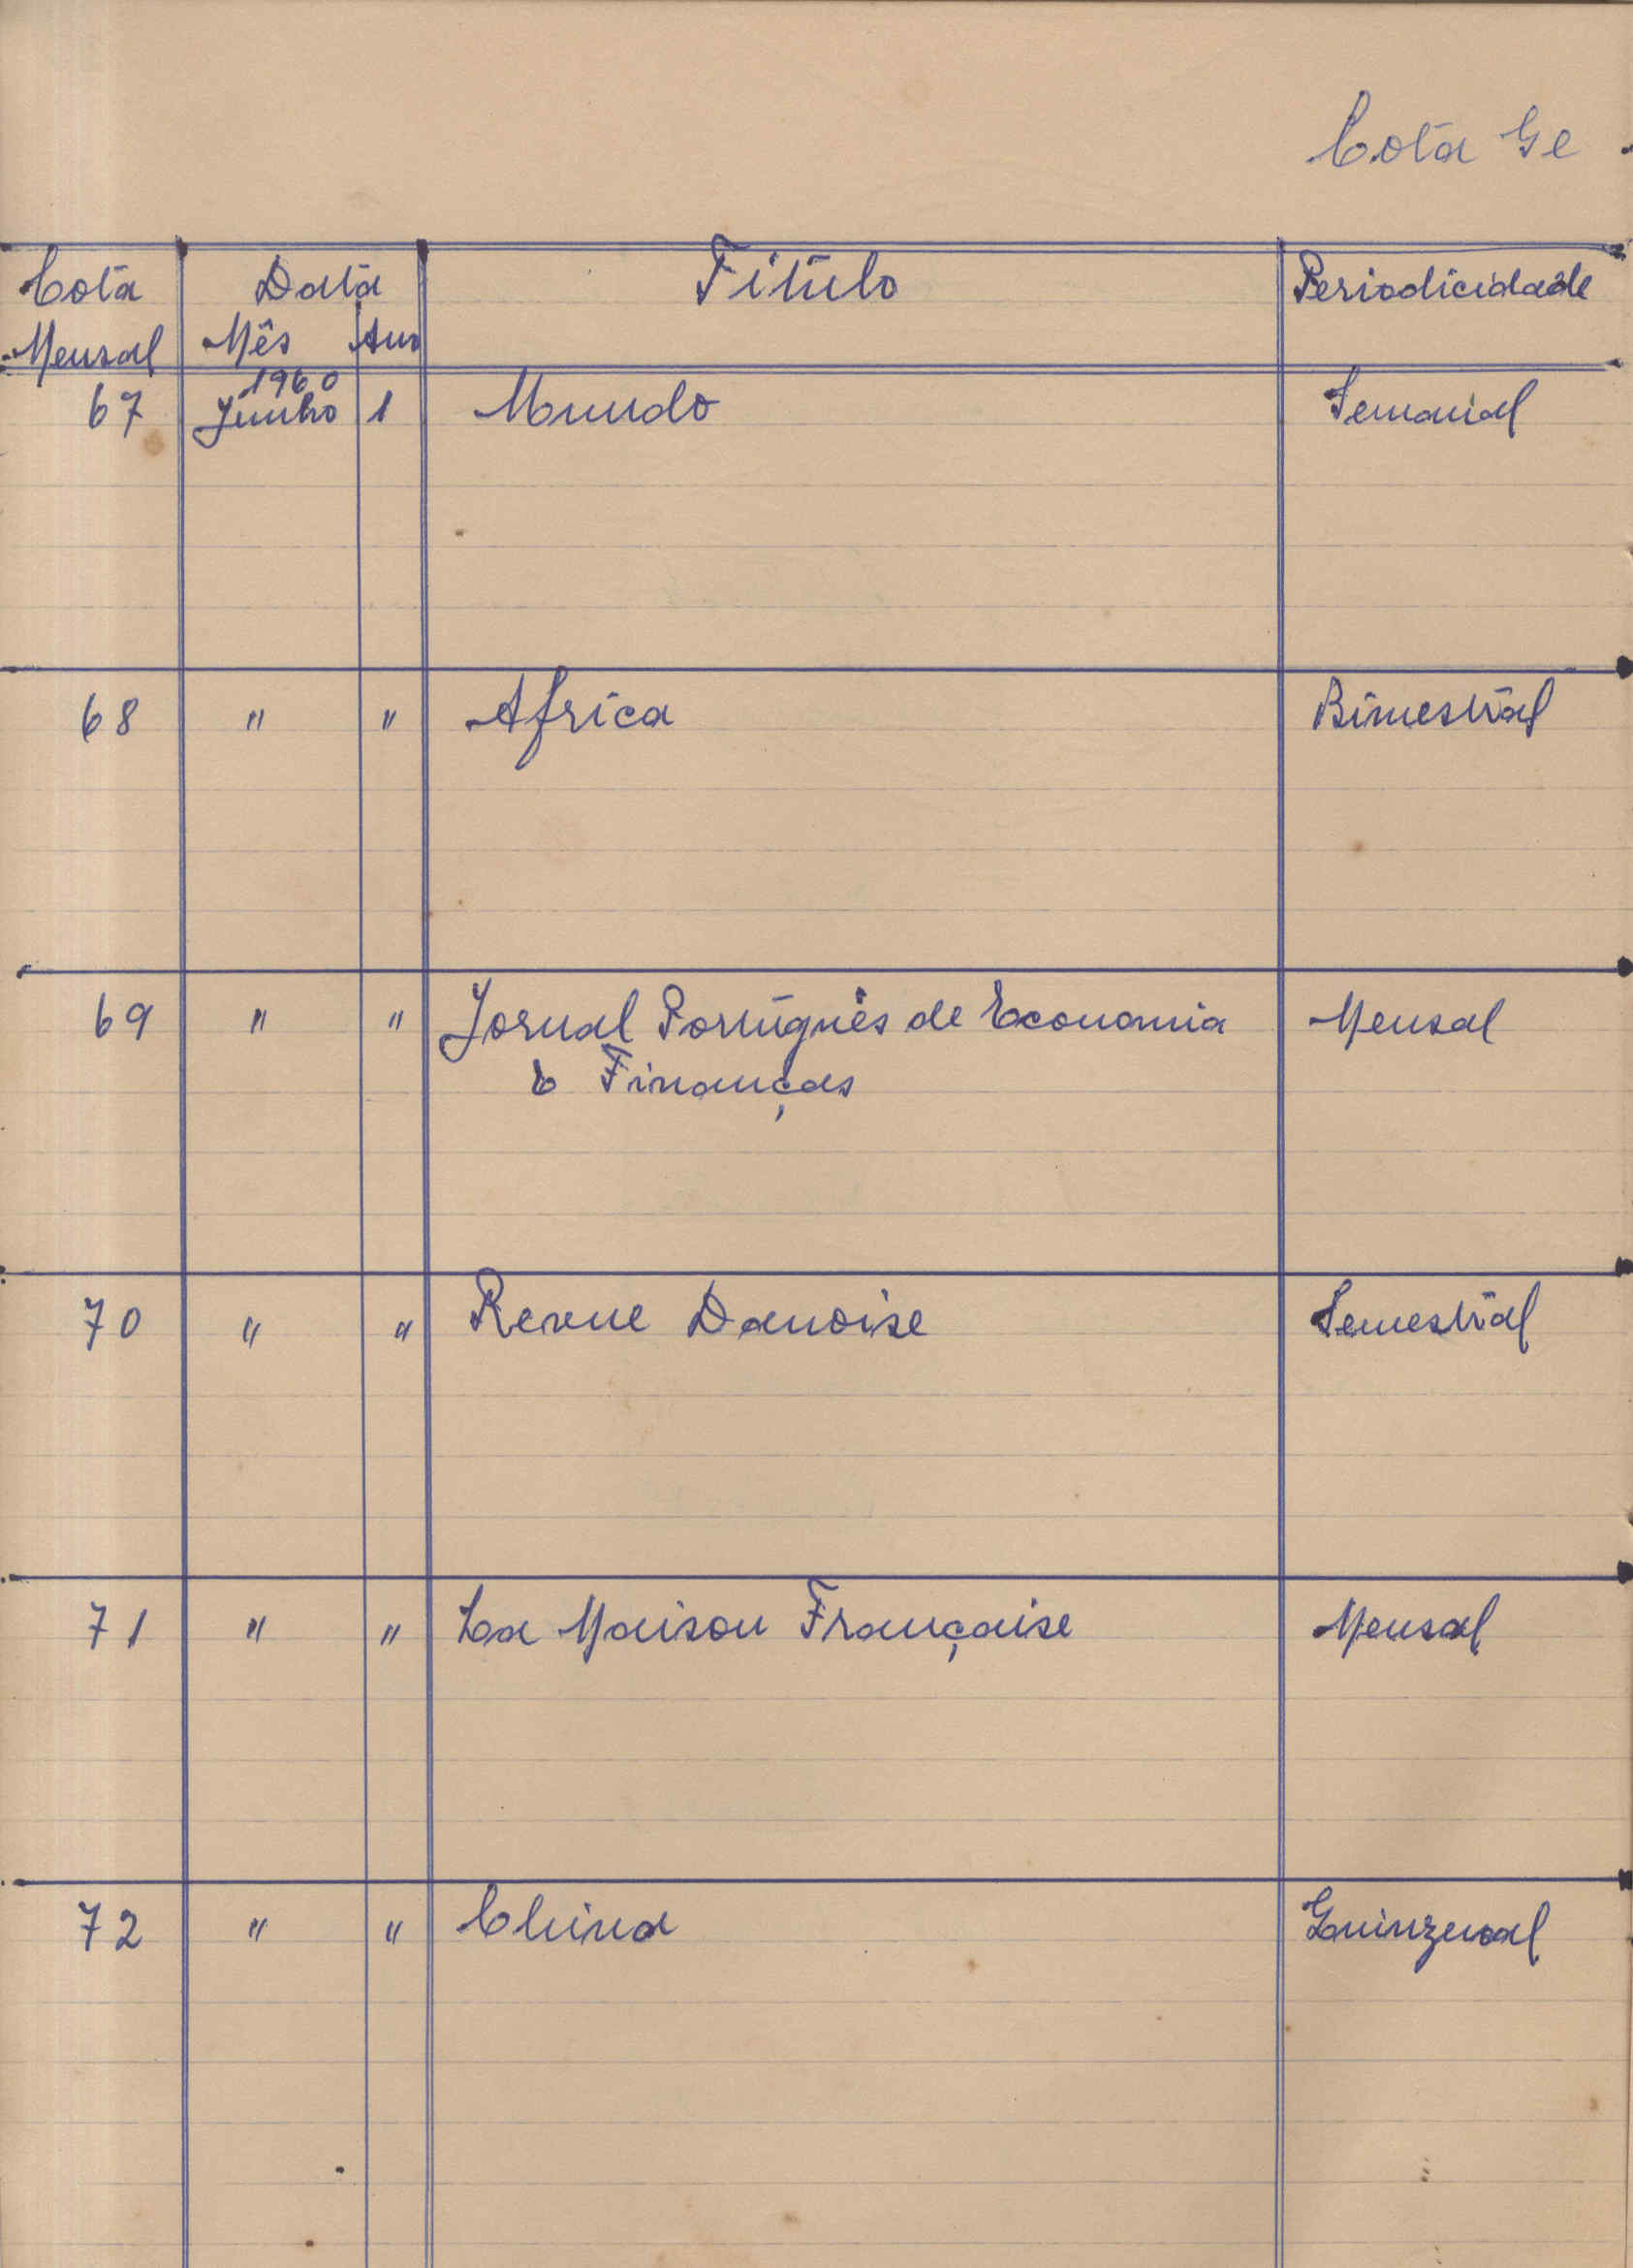 Cota Ge
Cota Data Título Periodicidade
Mensal Mês Ano
1960
67 Junho 1 Mundo Semanal
68 " " Africa Bimestral
69 " " Jornal Português de Economia Mensal
e Finanças
70 " " Revue Danoise Semestral
71 " " La Maison Française Mensal
72 " " China Quinzenal